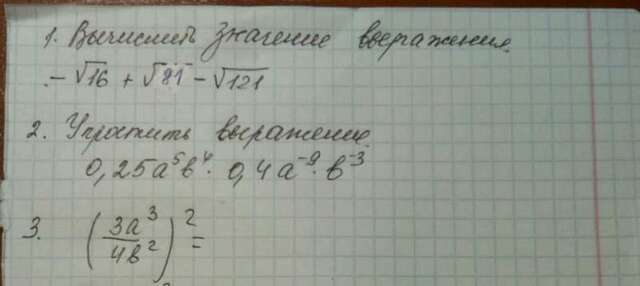 1. Вычислить значение выражения.
-√16 + √81 - √121
2. Упростить выражение.
0,25a⁵b⁴ · 0,4a⁻⁹ · b⁻³
3. (3a³/4b²)² =